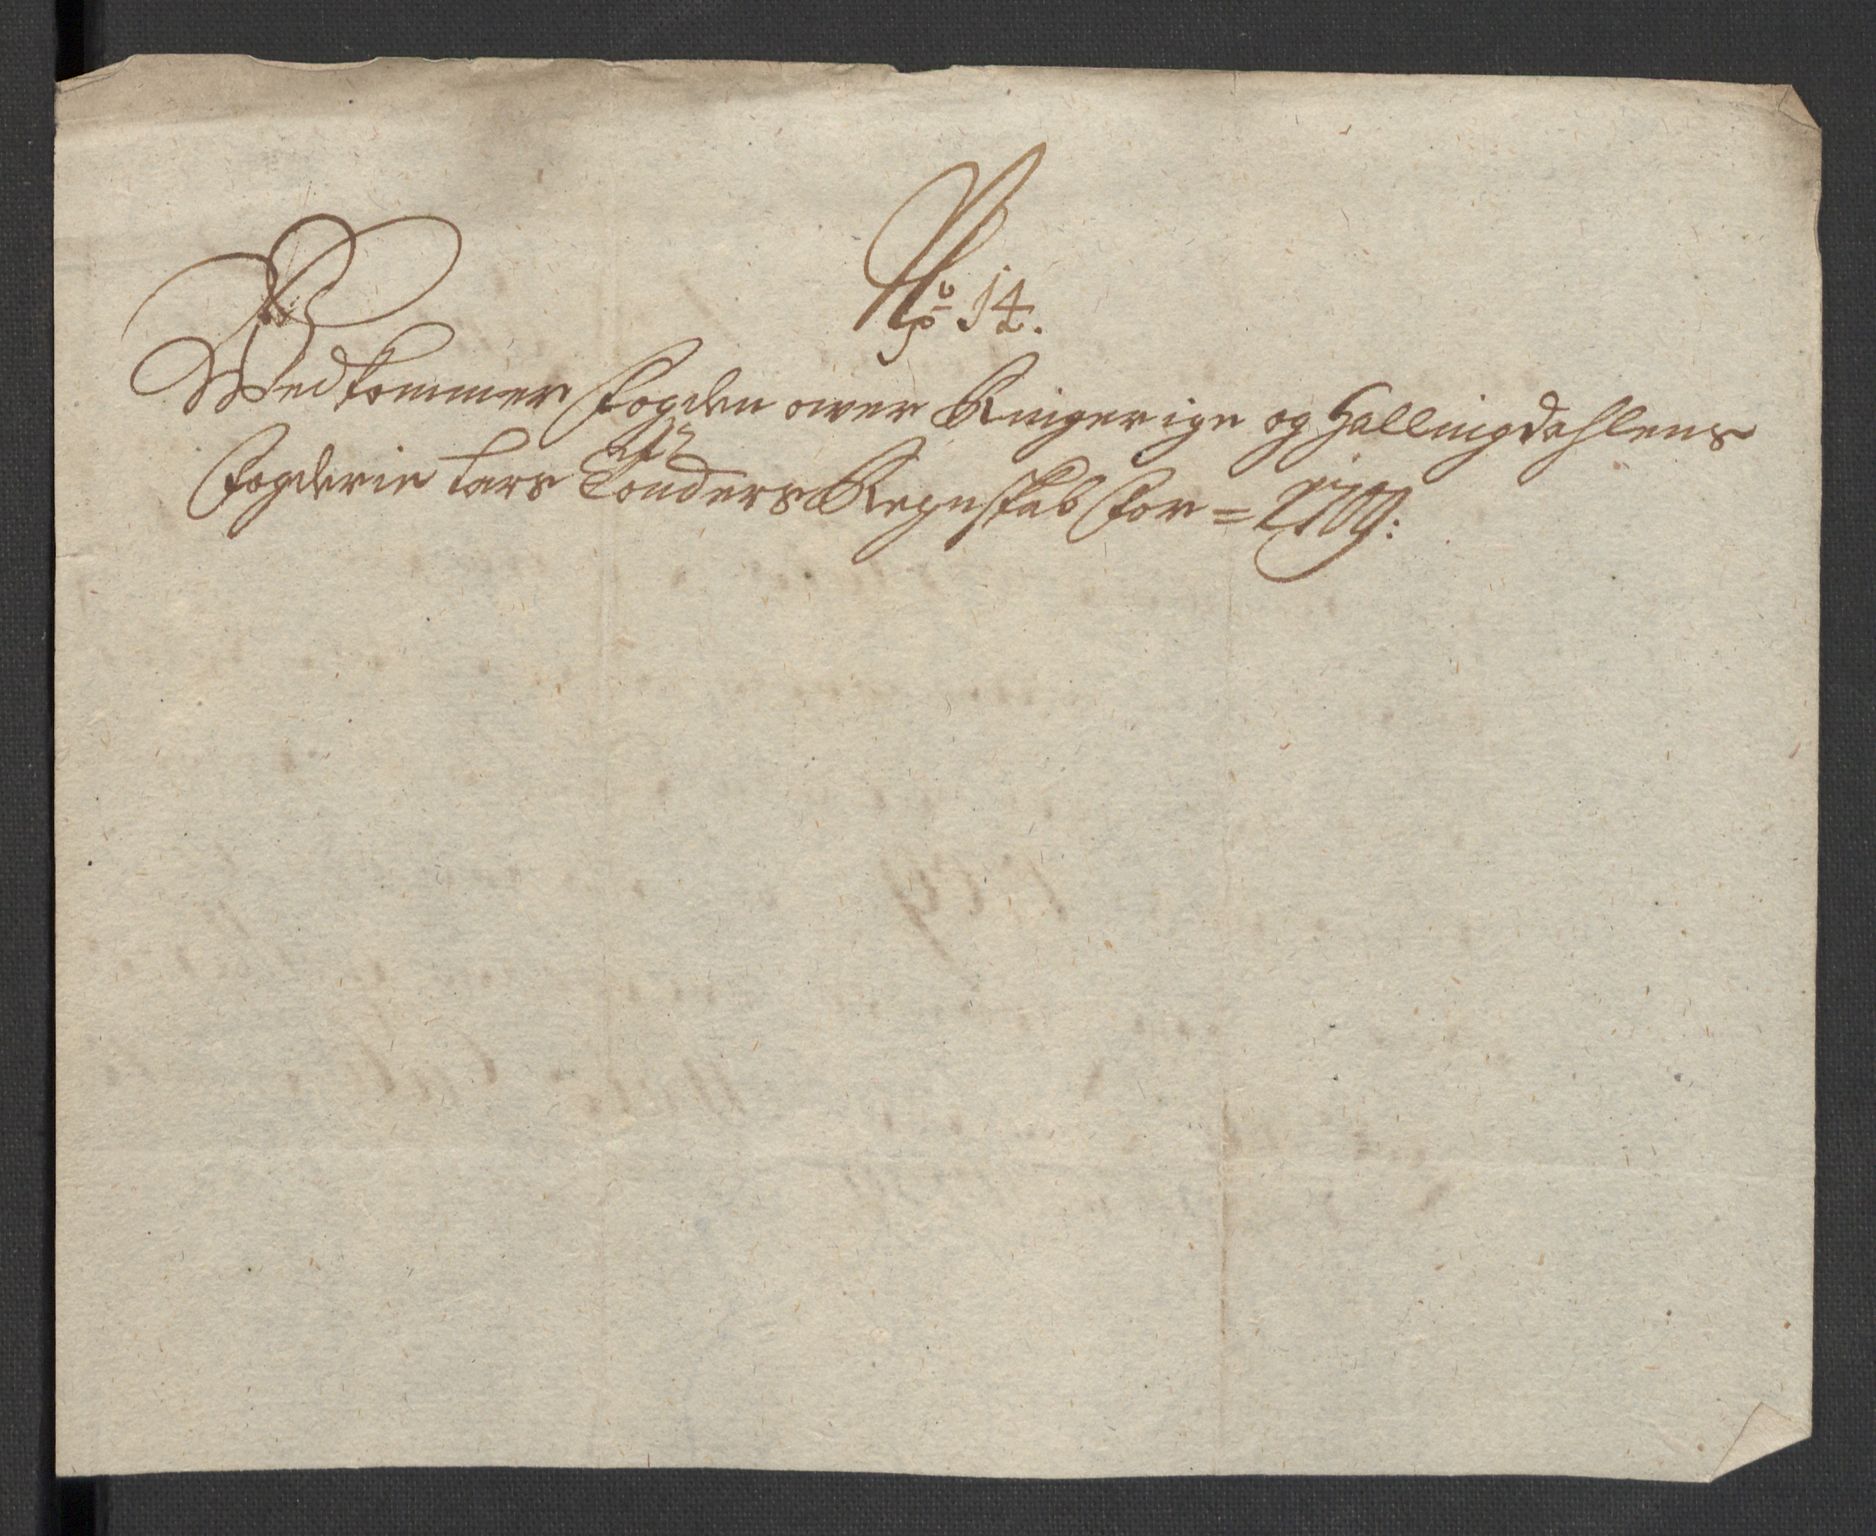 No 14.
Wedkommer Fogden ower Ringerige og Hallingdahlens
Fogderie Lars Tonders Regnskab for = 1709: